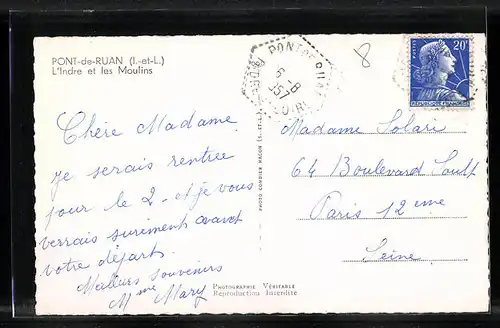 PONT-de-RUAN (I.-et-L.)
L'Indre et les Moulins
PONT DE RUAN
6-8
1957
8
POSTES 20F
REPUBLIQUE FRANÇAISE
Chère Madame
je serais rentrée
pour le 2 - et je vous
verrais surement avant
votre départ.
Meilleurs souvenirs
Mme Mary
PHOTO COMBIER MACON (S.-et-L.)
Madame Solari
64 Boulevard Soult
Paris 12eme
Seine.
PHOTOGRAPHIE VÉRITABLE
Reproduction Interdite